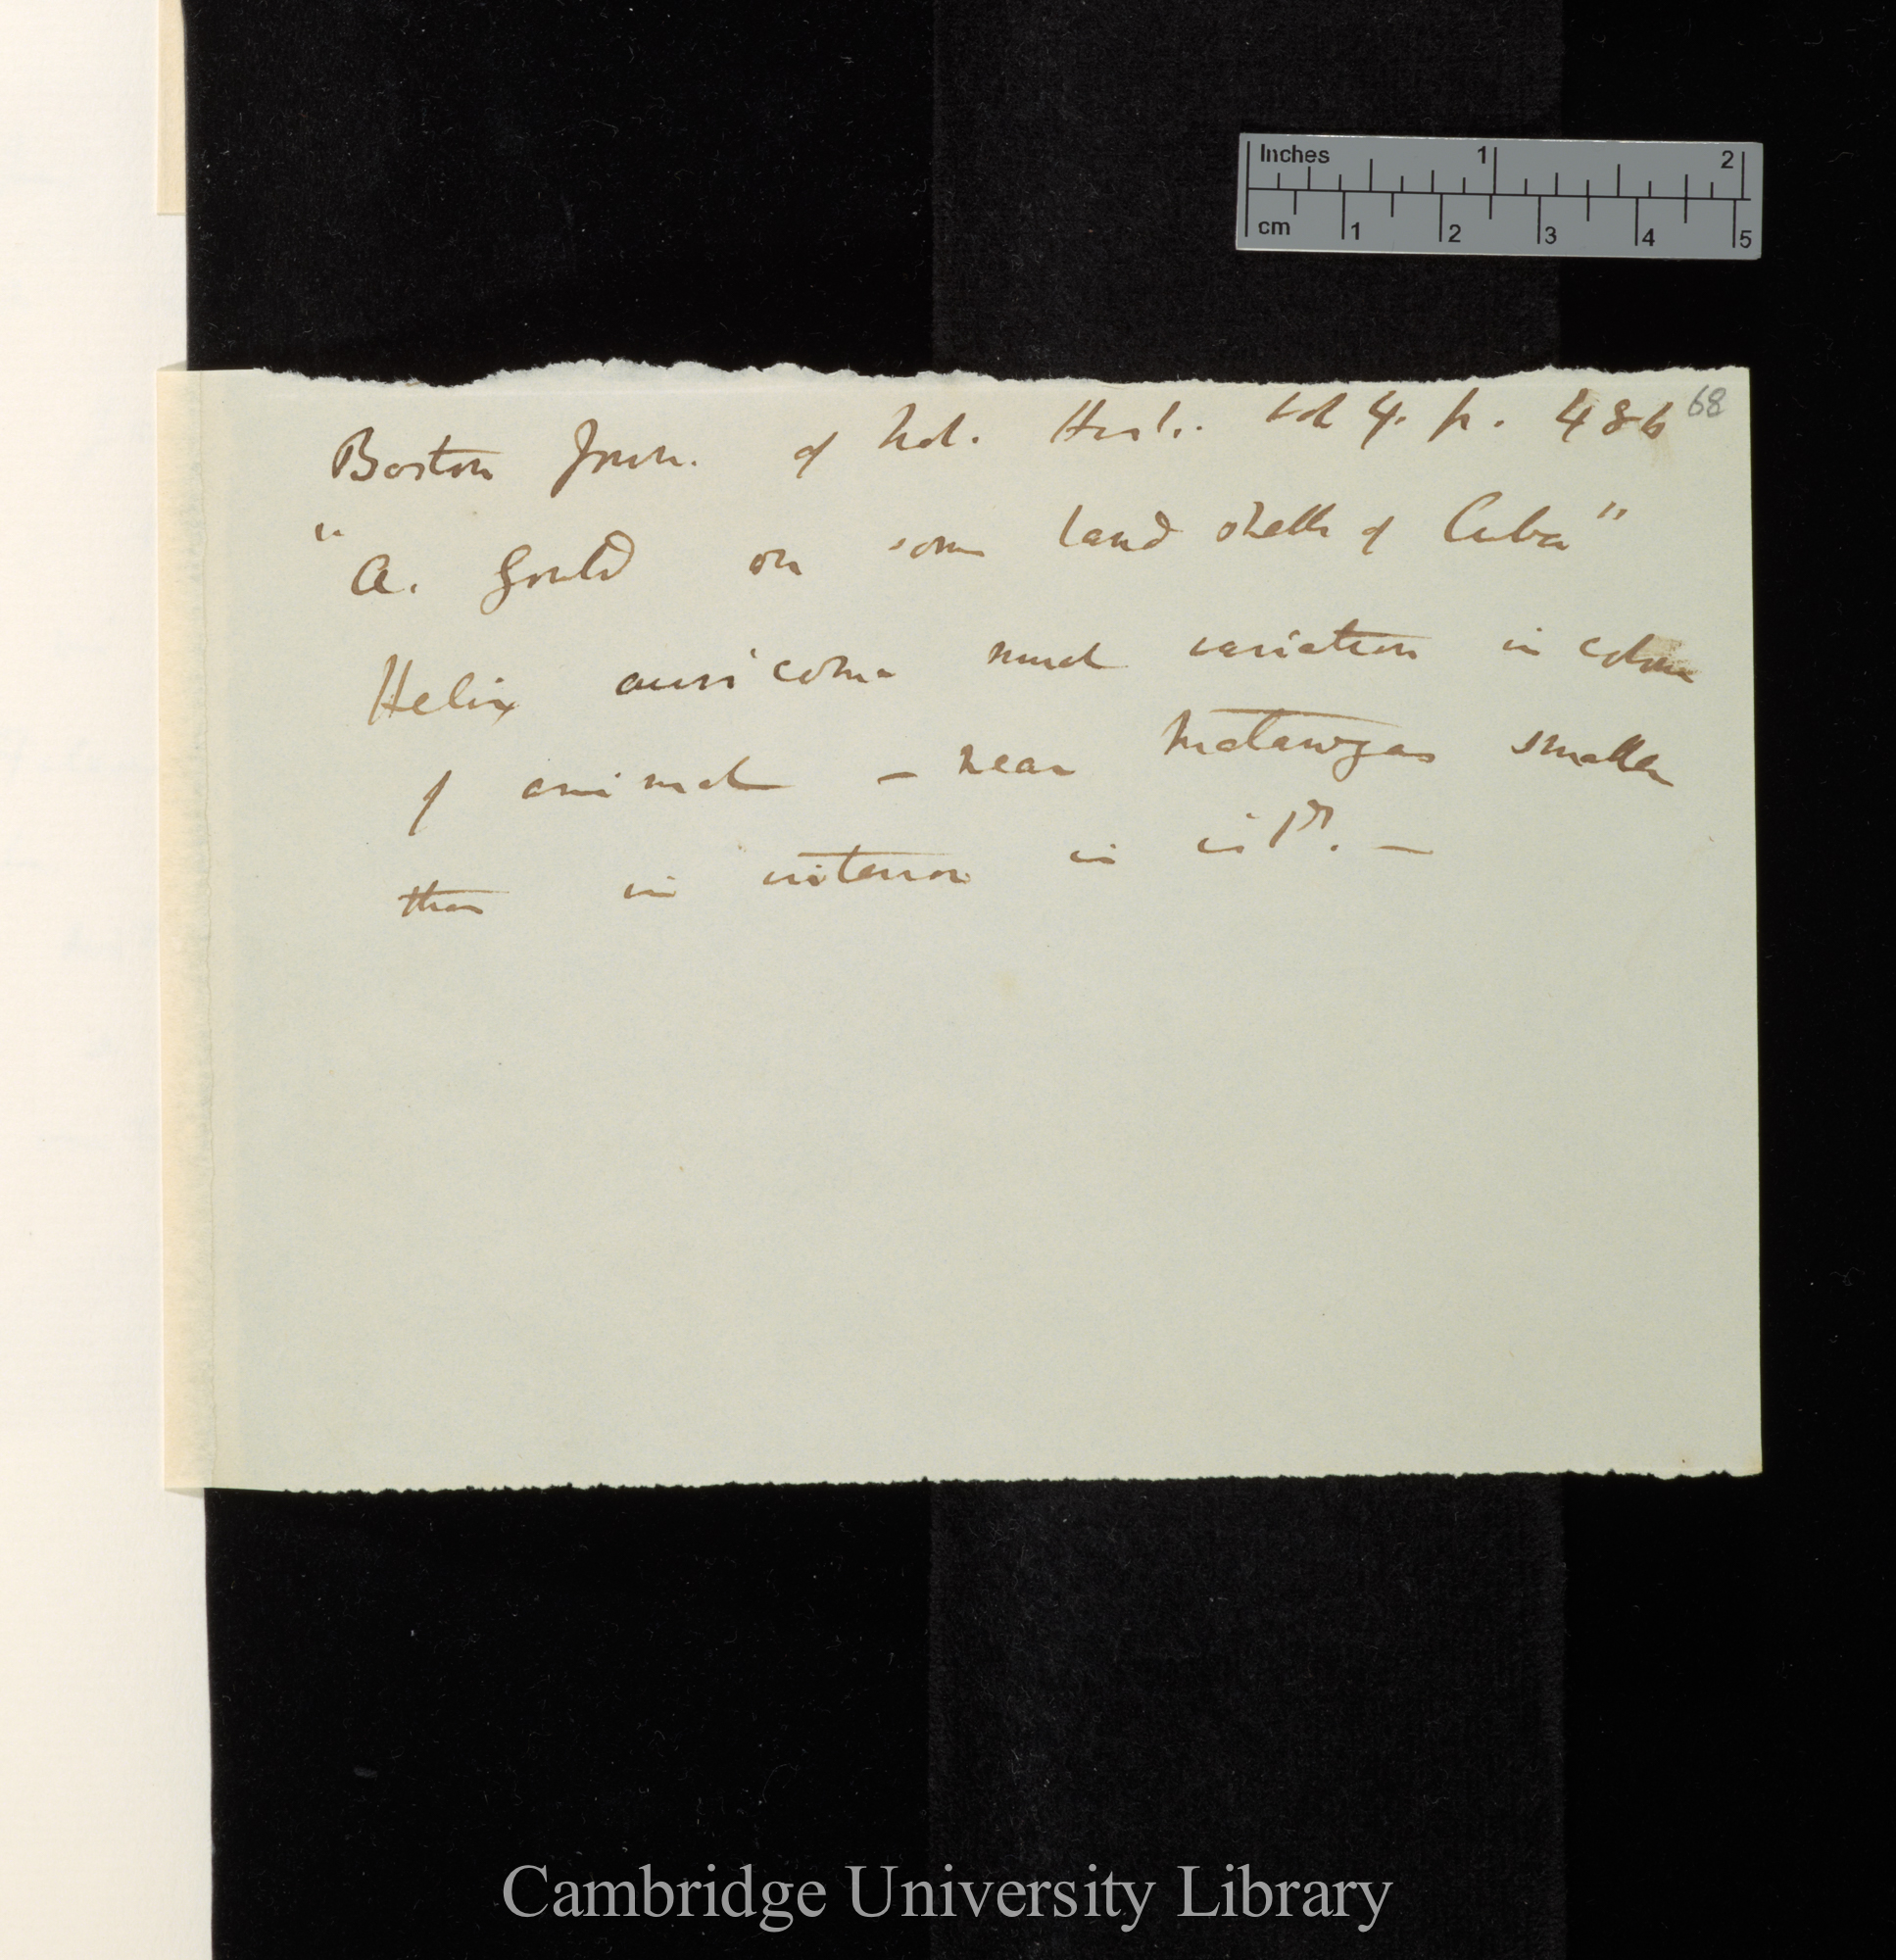 Inches 1 2
cm 1 2 3 4 5
68
Boston Journ. of Nat. Hist. vol 4. p. 486
"A. Gould on some land shells of Cuba"
Helix auricoma much variation in colour
of animal – near Matanzas smaller
than in interior in isl<sup>d</sup>. –
Cambridge University Library